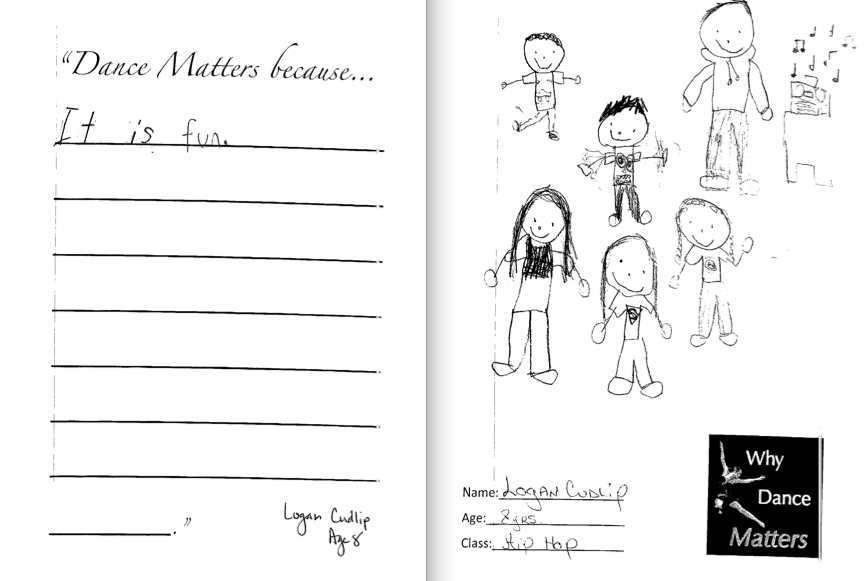 “Dance Matters because...
It is fun.
.”
Logan Cudlip
Age 8
Name: Logan Cudlip
Age: 8 yrs.
Class: Hip Hop
Why
Dance
Matters